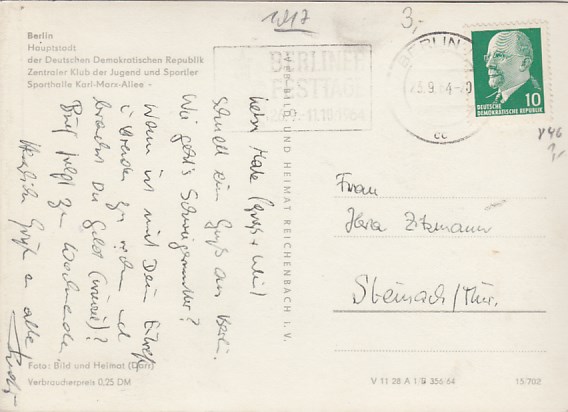 1217
3,-
Berlin
Hauptstadt
der Deutschen Demokratischen Republik
Zentraler Klub der Jugend und Sportler
Sporthalle Karl-Marx-Allee -
BERLINER
FESTTAGE
-11.10.1964
BERLIN
23.9.64-20
DEUTSCHE
DEMOKRATISCHE REPUBLIK
10
846
VEB BILD UND HEIMAT REICHENBACH I. V.
schnell ein Gruß aus Berlin.
Wie geht's Schwiegermutter?
Wann ist mit Dein
und
brauchst Du Geld (wieviel)?
Brief folgt zum Wochenende.
Herzliche Grüße an alle!
Frau
Hera Zitzmann
Steinach/Thür.
Foto: Bild und Heimat (Darr)
Verbraucherpreis 0,25 DM
V 11 28 A 1 B 356 64
15702